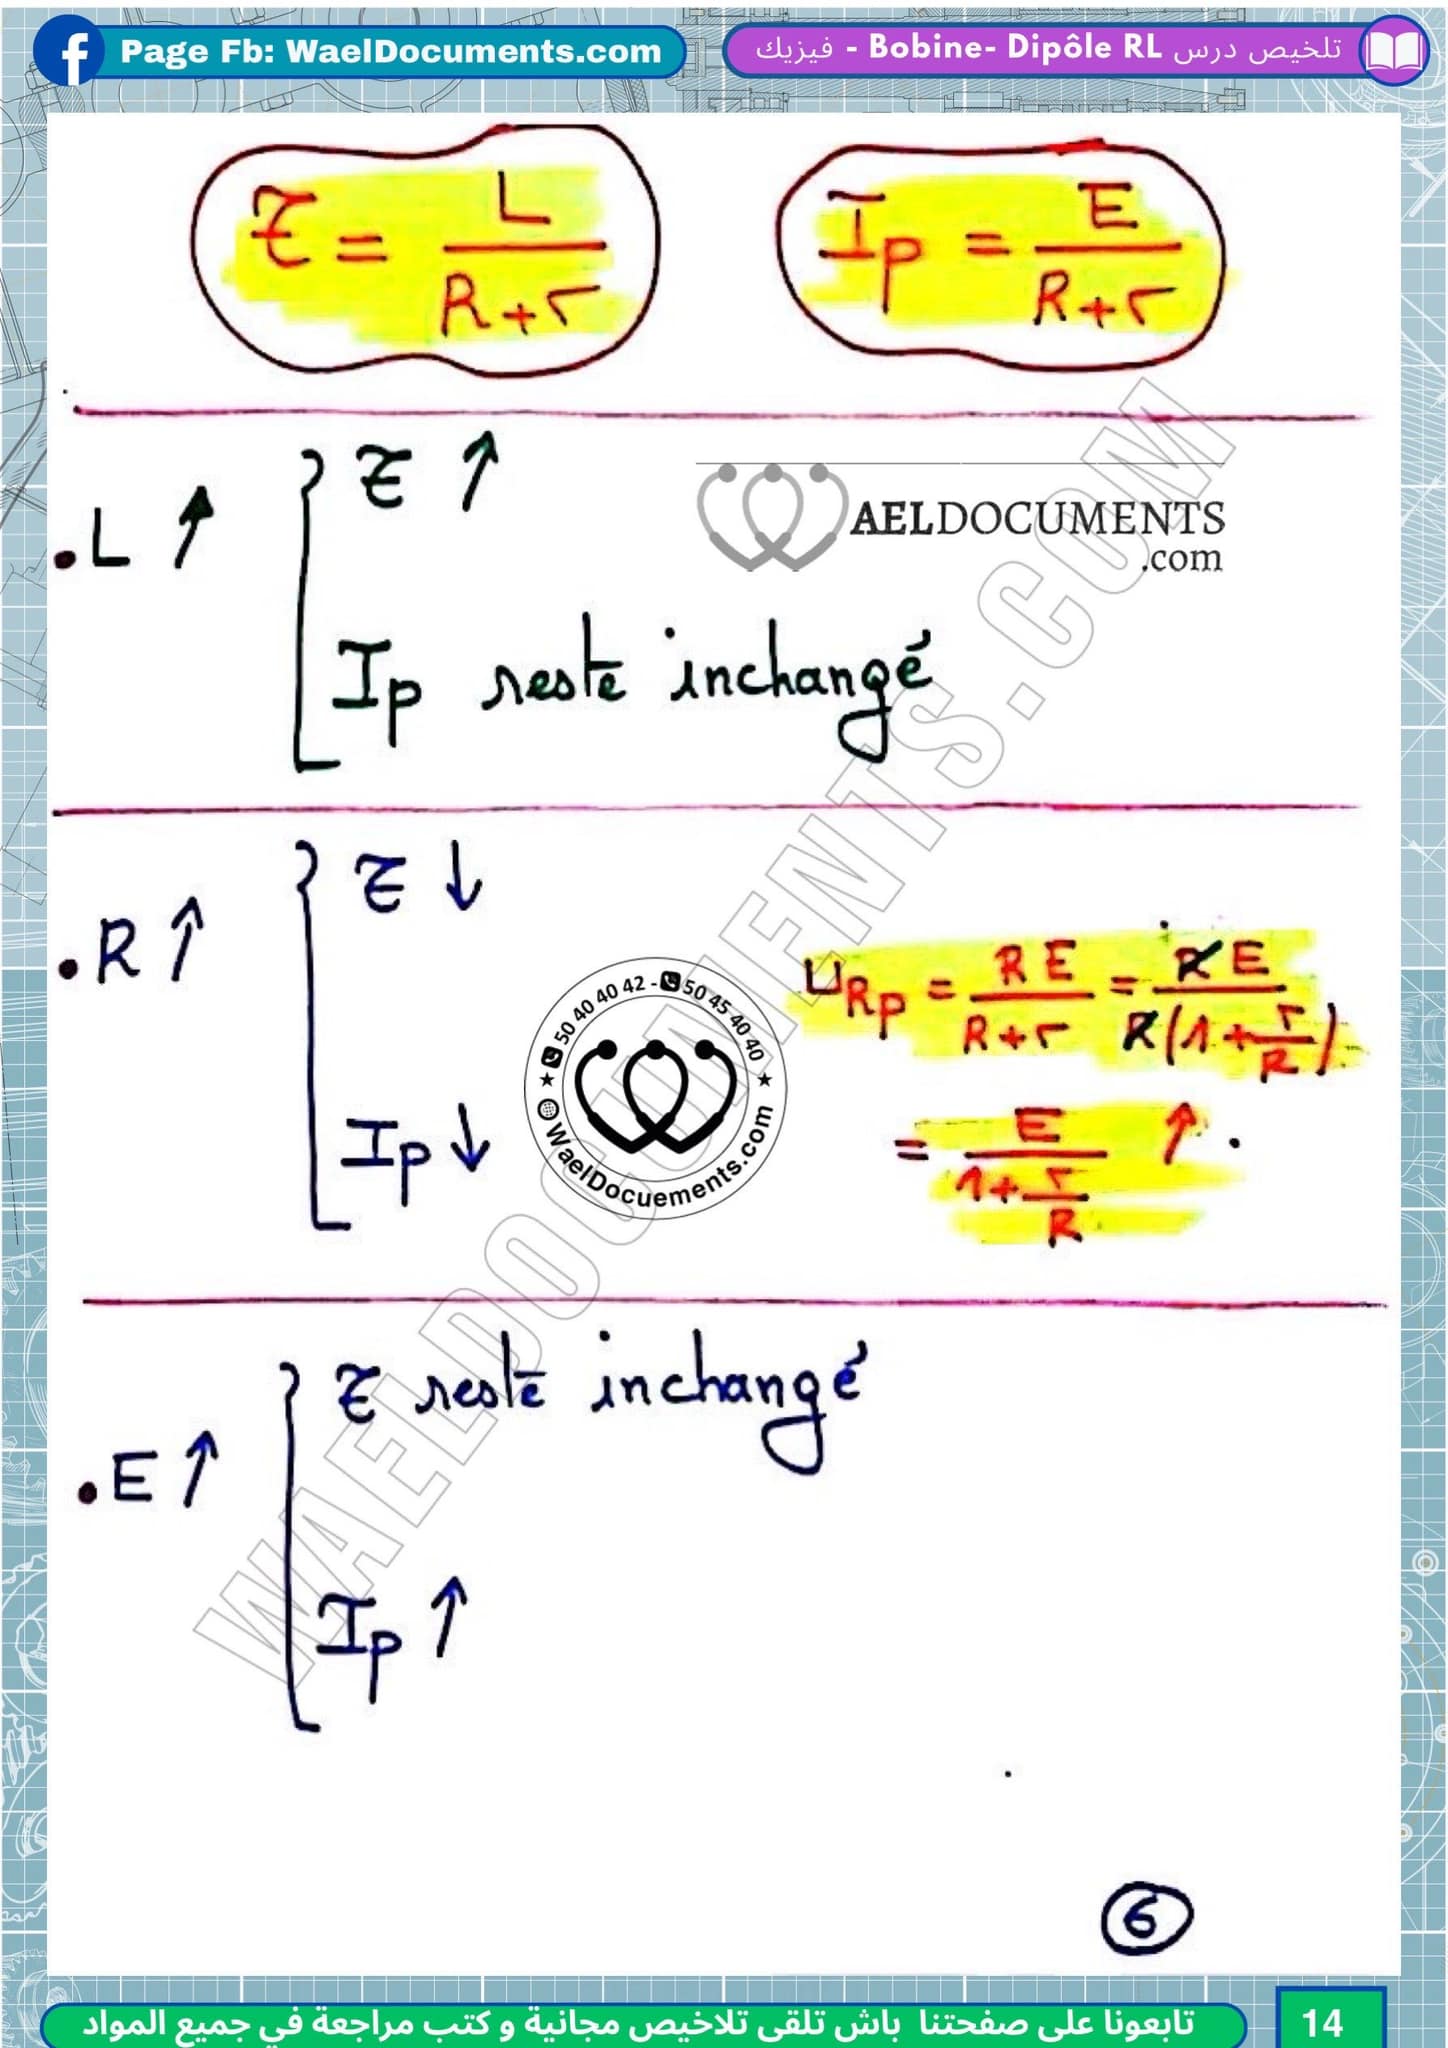 Page Fb: WaelDocuments.com
تلخيص درس Bobine- Dipôle RL - فيزيك
τ = L / (R+r)
Ip = E / (R+r)
.L ↑ { τ ↑
Ip reste inchangé
AELDOCUMENTS
.com
.R ↑ { τ ↓
Ip ↓
URp = RE / (R+r) = RE / R(1+r/R)
= E / (1+r/R) ↑ .
50 40 40 42 - 50 45 40 40
WaelDocuements.com
.E ↑ { τ reste inchangé
Ip ↑
WAELDOCUMENTS.COM
6
تابعونا على صفحتنا باش تلقى تلاخيص مجانية و كتب مراجعة في جميع المواد
14